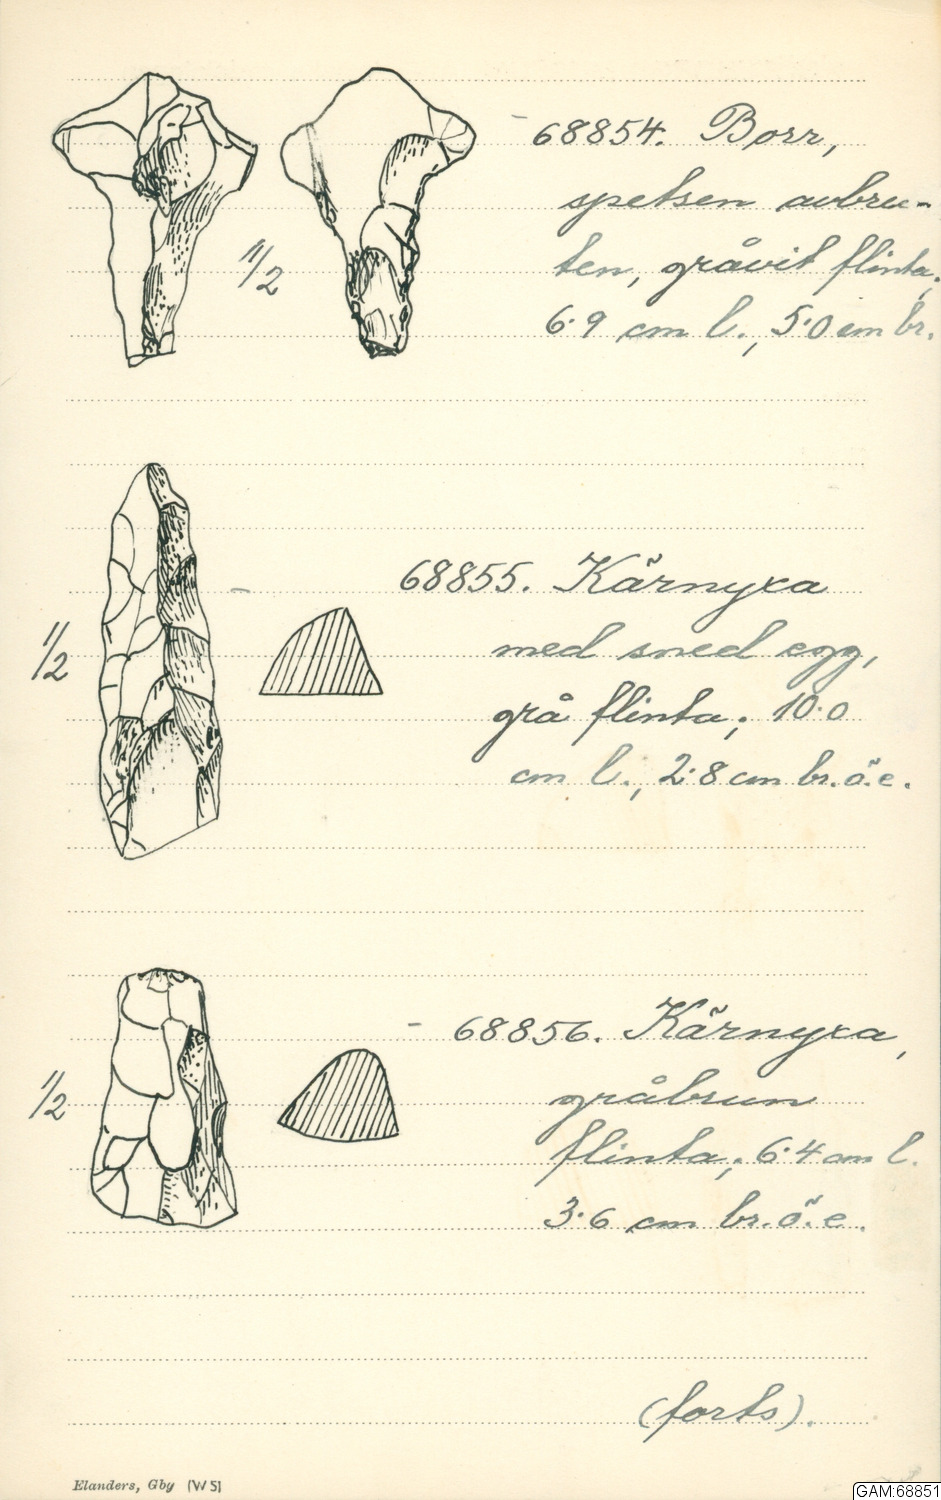 68854. Borr,
spetsen avbru-
ten, gråvit flinta;
6.9 cm l., 5.0 cm br.
1/2
68855. Kärnyxa
med sned egg,
grå flinta; 10.0
cm l., 2.8 cm br. ö. e.
1/2
68856. Kärnyxa,
gråbrun
flinta; 6.4 cm l.
3.6 cm br. ö. e.
1/2
(forts).
Elanders, Gbg (W 5)
GAM:68851